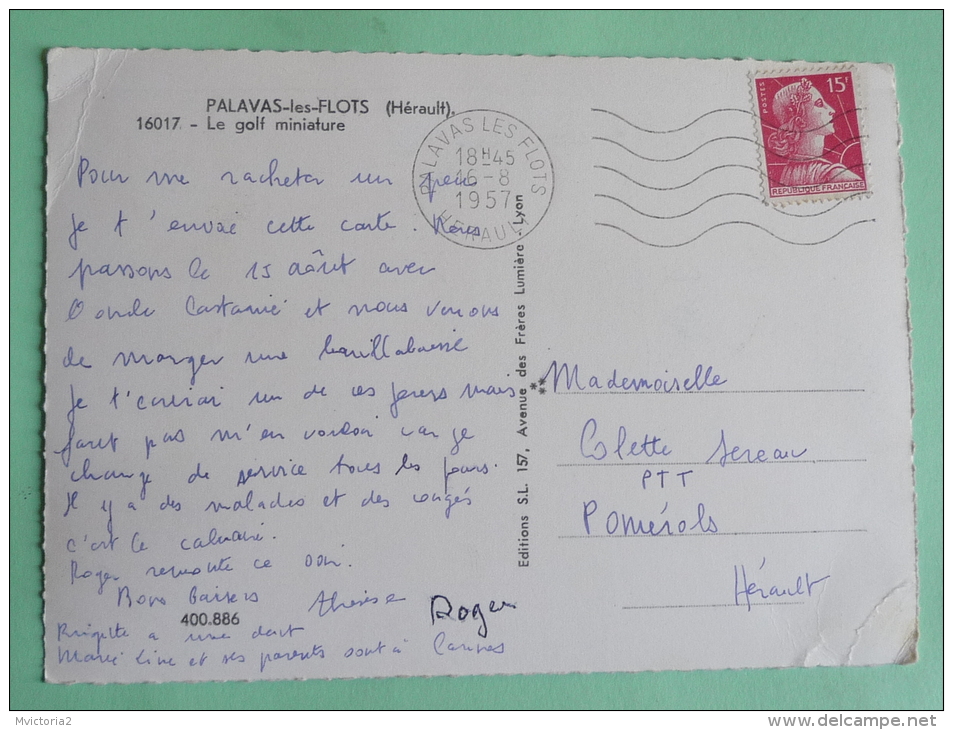 PALAVAS-les-FLOTS (Hérault).
16017 - Le golf miniature
Pour me racheter un peu
je t'envoie cette carte. Nous
passons le 15 août avec
Oncle Castanié et nous venons
de manger une bouillabaisse
Je t'écrirai un de ces jours mais
faut pas m'en vouloir car je
change de service tous les jours.
Il y a des malades et des congés
c'est le calvaire.
Roger remonte ce soir.
Bons Baisers Thérèse Roger
400.886
Brigitte a une dent
Marie Line et ses parents sont à Cannes
Editions S.L. 157, Avenue des Frères Lumière - Lyon
PALAVAS LES FLOTS
18H45
16-8
1957
HERAULT
POSTES
15F
REPUBLIQUE FRANÇAISE
Mademoiselle
Colette
PTT
Pomérols
Hérault
Mvictoria2
www.delcampe.net